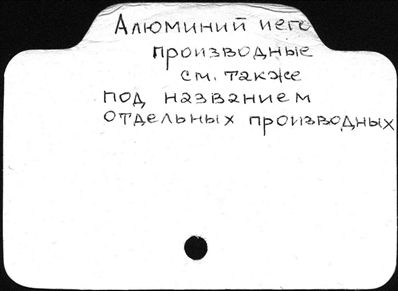 Алюминий иего
производные
см. также
под названием
отдельных производных